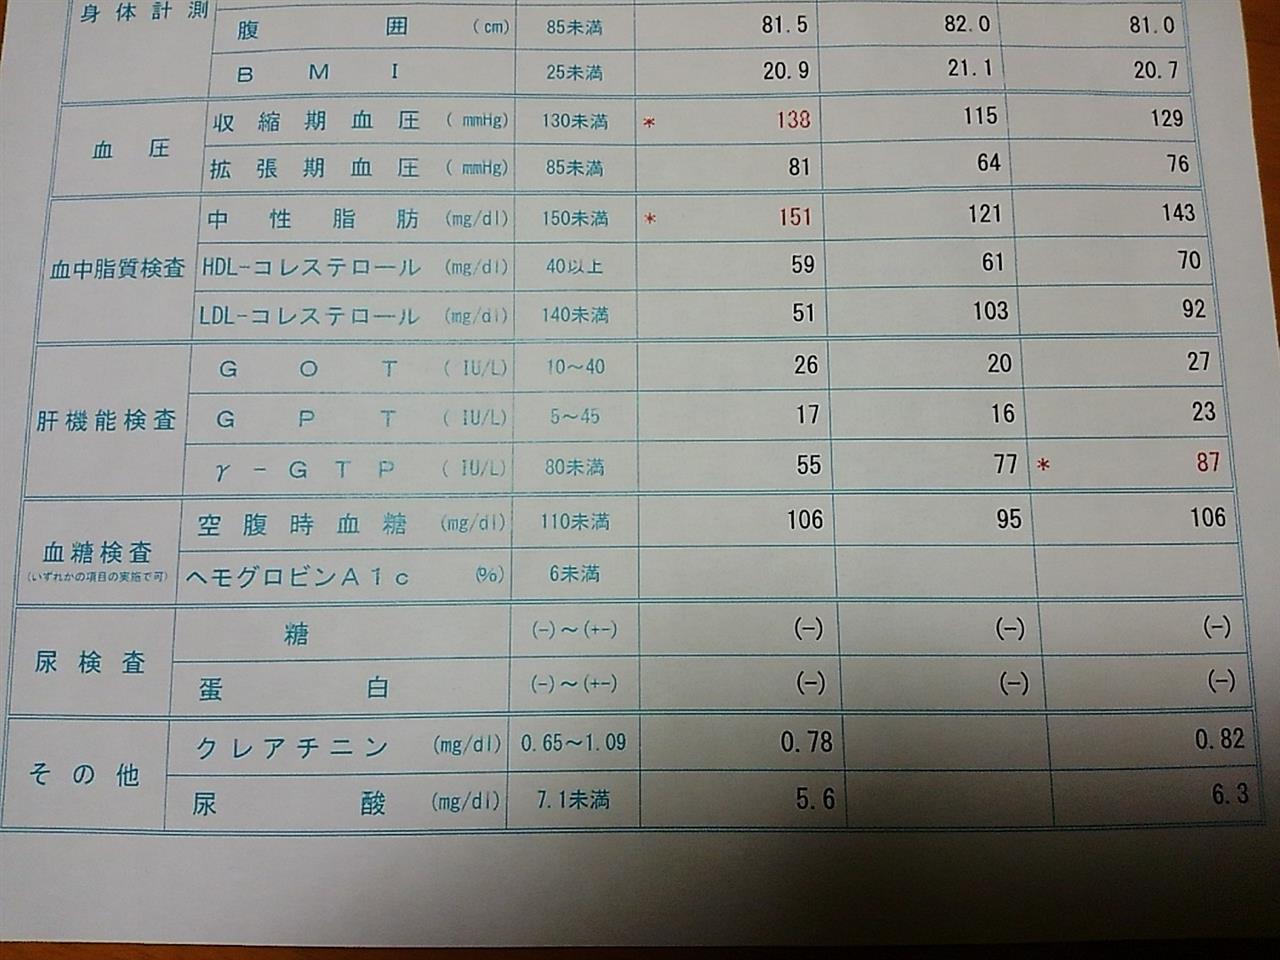 身体計測
腹囲 (cm) 85未満 81.5 82.0 81.0
BMI 25未満 20.9 21.1 20.7
血圧
収縮期血圧 (mmHg) 130未満 * 138 115 129
拡張期血圧 (mmHg) 85未満 81 64 76
血中脂質検査
中性脂肪 (mg/dl) 150未満 * 151 121 143
HDL-コレステロール (mg/dl) 40以上 59 61 70
LDL-コレステロール (mg/dl) 140未満 51 103 92
肝機能検査
GOT (IU/L) 10～40 26 20 27
GPT (IU/L) 5～45 17 16 23
γ-GTP (IU/L) 80未満 55 77 * 87
血糖検査
(いずれかの項目の実施で可)
空腹時血糖 (mg/dl) 110未満 106 95 106
ヘモグロビンA1c (%) 6未満
尿検査
糖 (-)～(+-) (-) (-) (-)
蛋白 (-)～(+-) (-) (-) (-)
その他
クレアチニン (mg/dl) 0.65～1.09 0.78 0.82
尿酸 (mg/dl) 7.1未満 5.6 6.3